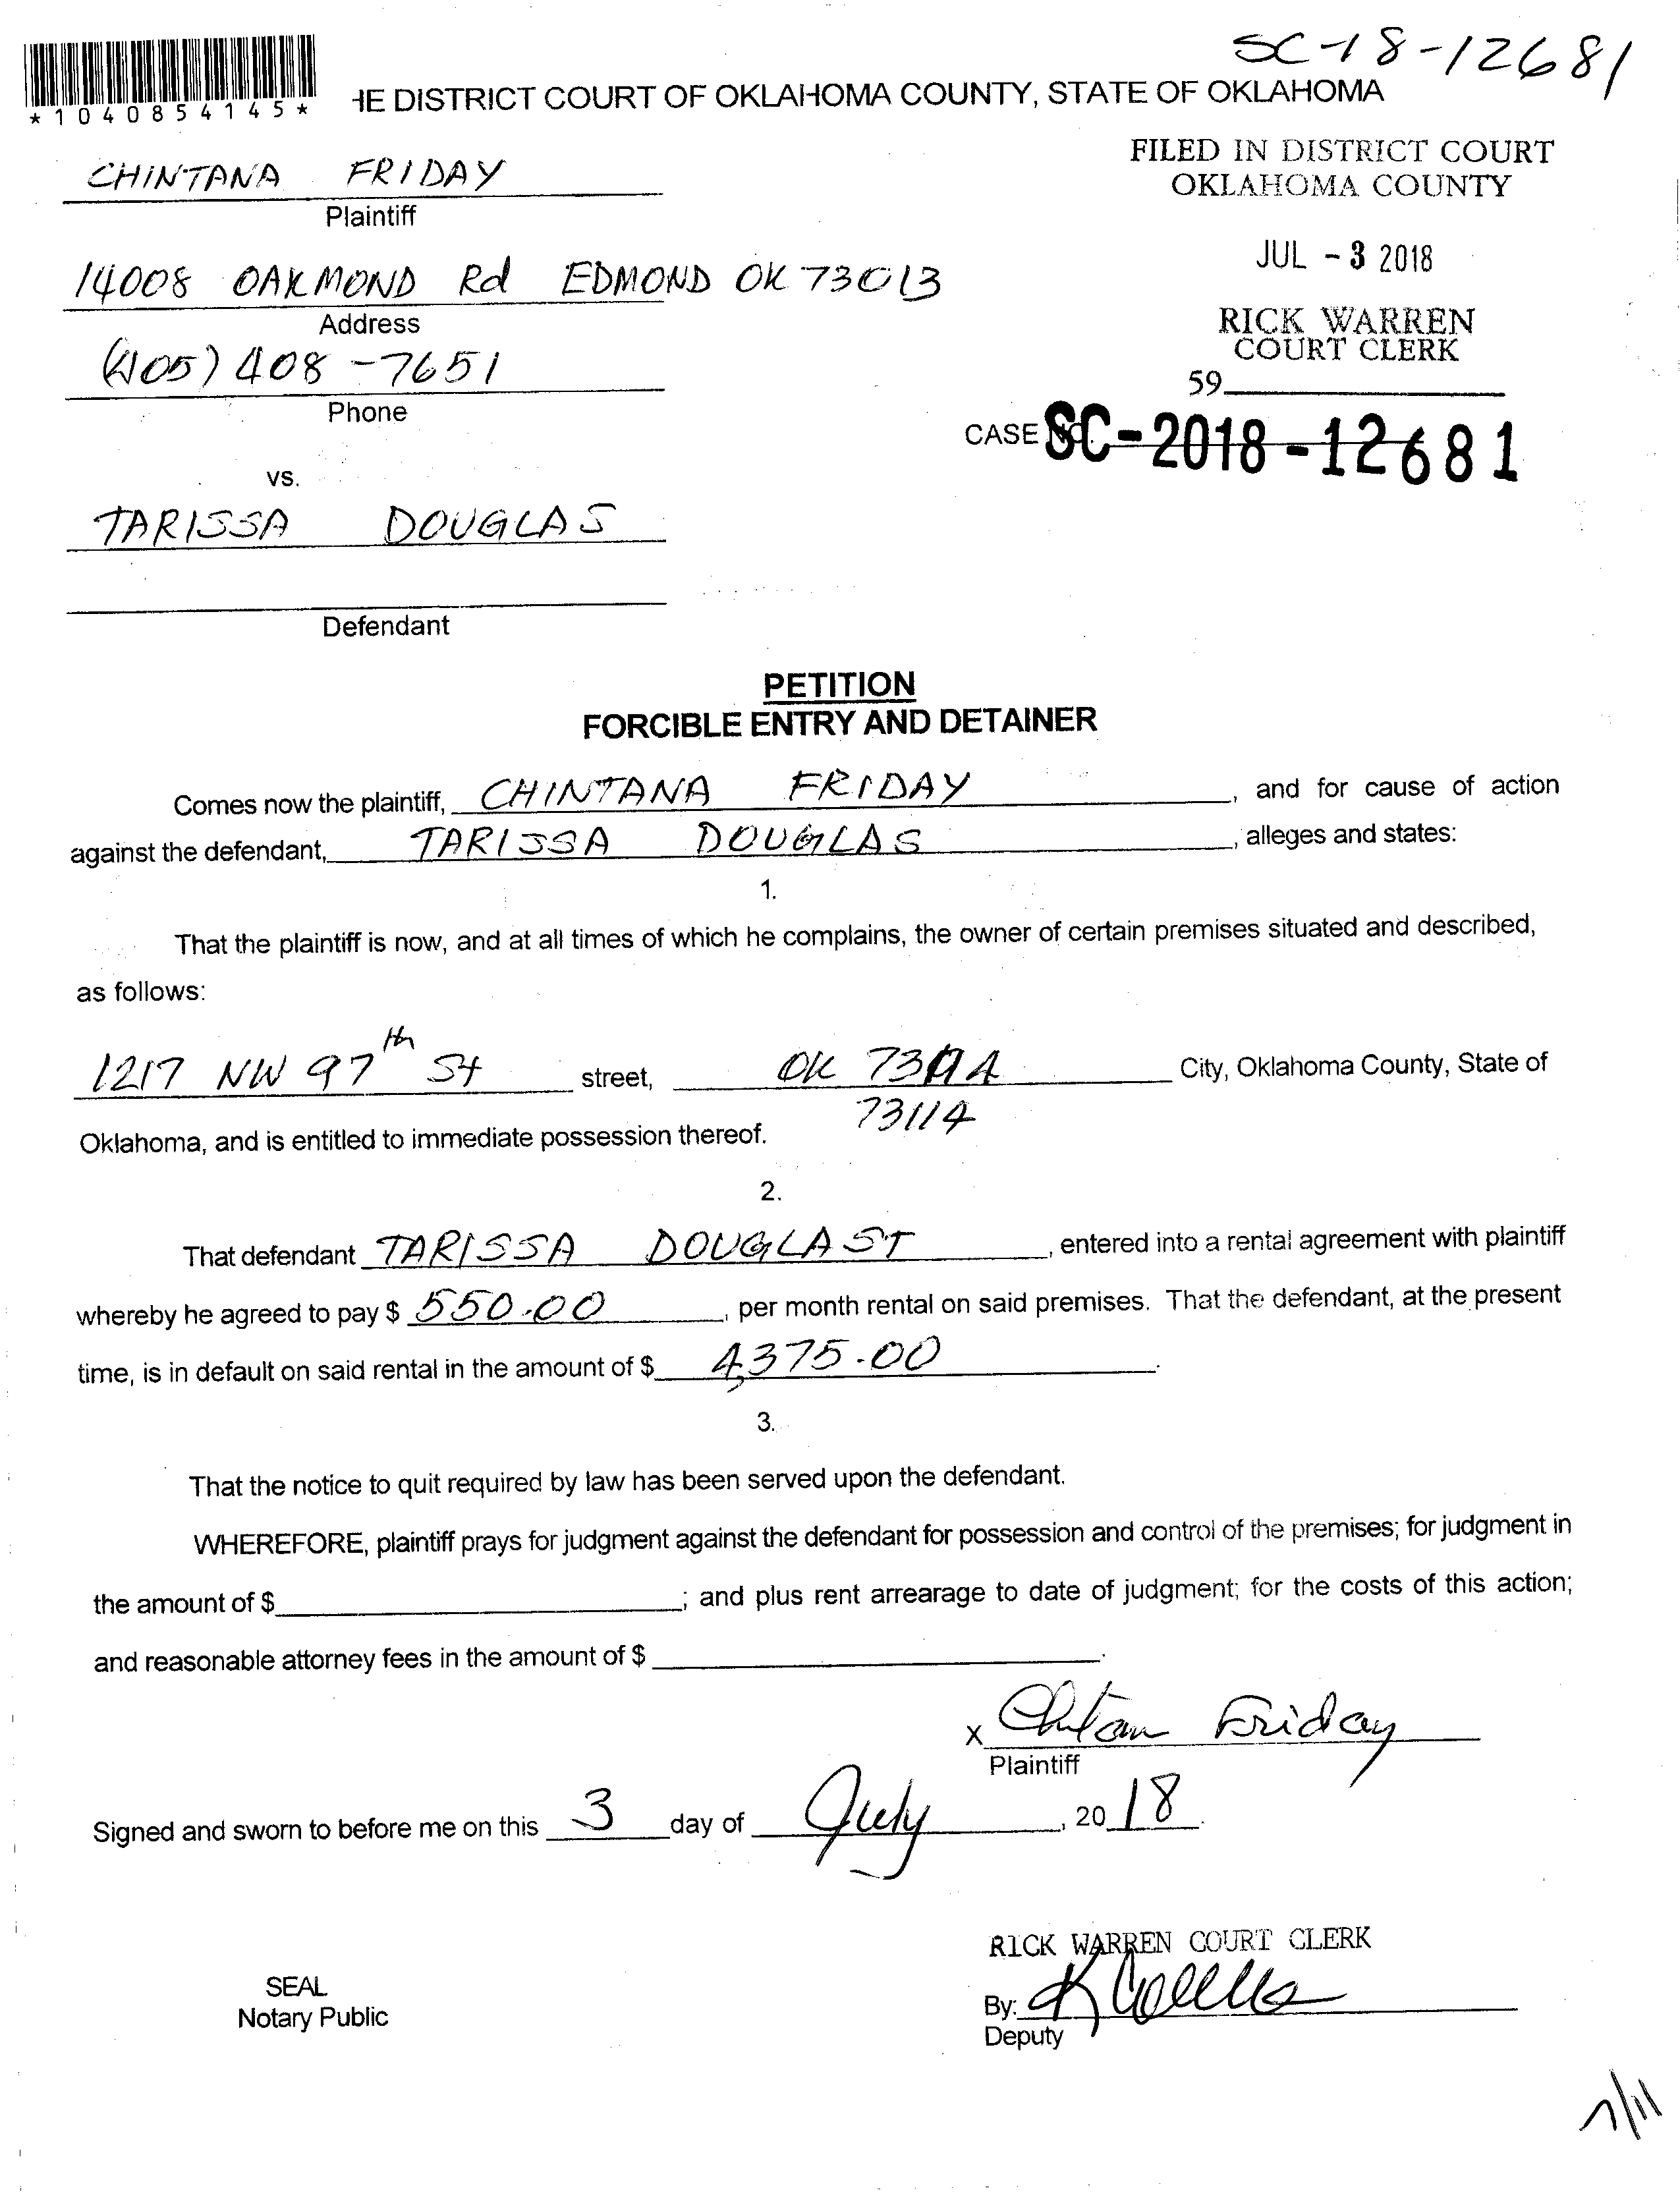 SC-18-12681
*1040854145*
HE DISTRICT COURT OF OKLAHOMA COUNTY, STATE OF OKLAHOMA
FILED IN DISTRICT COURT
OKLAHOMA COUNTY
CHINTANA FRIDAY
Plaintiff
JUL - 3 2018
14008 OAKMOND Rd EDMOND OK 73013
Address
RICK WARREN
COURT CLERK
(405) 408-7651
59
Phone
CASE NO. SC-2018-12681
vs.
TARISSA DOUGLAS
Defendant
PETITION
FORCIBLE ENTRY AND DETAINER
Comes now the plaintiff, CHINTANA FRIDAY, and for cause of action
against the defendant, TARISSA DOUGLAS, alleges and states:
1.
That the plaintiff is now, and at all times of which he complains, the owner of certain premises situated and described,
as follows:
1217 NW 97th St street, OK City, Oklahoma County, State of
73114
Oklahoma, and is entitled to immediate possession thereof.
2.
That defendant TARISSA DOUGLAST, entered into a rental agreement with plaintiff
whereby he agreed to pay $ 550.00, per month rental on said premises. That the defendant, at the present
time, is in default on said rental in the amount of $ 4,375.00.
3.
That the notice to quit required by law has been served upon the defendant.
WHEREFORE, plaintiff prays for judgment against the defendant for possession and control of the premises; for judgment in
the amount of $ ; and plus rent arrearage to date of judgment; for the costs of this action;
and reasonable attorney fees in the amount of $ .
X Friday
Plaintiff
Signed and sworn to before me on this 3 day of July, 2018.
RICK WARREN COURT CLERK
SEAL
Notary Public
By:
Deputy
7/11